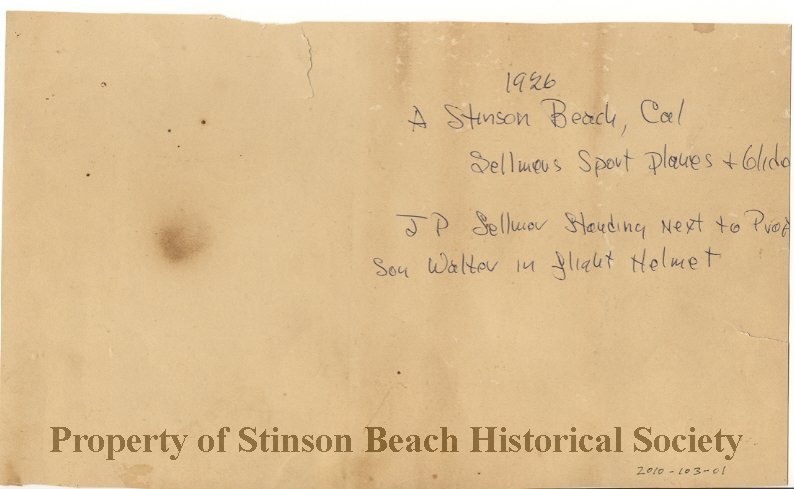 1926
A Stinson Beach, Cal
Sellmers Sport planes + Glide
J P Sellmer Standing Next to Prop
Son Walter in flight Helmet
Property of Stinson Beach Historical Society
2010-103-01